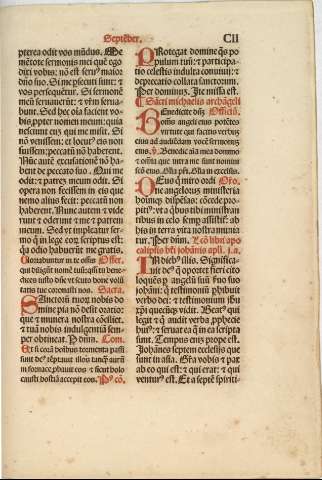 Septēber. CII
pterea odit vos mūdus. Me
mētote sermonis mei quē ego
dixi vobis: nō est seruꝰ maior
dño suo. Si me psecuti sunt: et
vos persequētur. Si sermonē
meū seruauerūt: et vr̄m serua-
bunt. Sed hec oīa facient vo
bis, ppter nomen meum: quia
nesciunt eū qui me misit. Si
nō venissem: et locutꝰ eis non
fuissem: peccatū nō haberent.
Nūc autē excusationē nō ha
bent de peccato suo. Qui me
odit: et patrem meum odit. Si
opera non fecissem in eis que
nemo alius fecit: peccatū non
haberent. Nunc autem et vide
runt et oderunt et me et patrem
meum. Sed vt impleatur ser
mo qͥ in lege eorū scriptus est:
qꝛ odio habuerūt me gratis.
Gloriabuntur in te oēs Offer.
qui diligunt nomē tuū: qm̄ tu bene-
dices iusto dñe vt scuto bone volū
tatis tue coronasti nos. Secre.
Sanctorū tuoꝝ nobis do
mine pia nō desit oratio:
que et munera nostra cōciliet,
et tuā nobis indulgentiā sem
per obtineat. P dñm. Com.
Et si corā hoībus tormenta passi
sunt deꝰ tēptauit illos tanqͣ aurū
in fornace, pbauit eos et sicut holo
causti hostiā accepit eos. Pꝰ cō.
Protegat domine qͣs po
pulum tuū: et participa-
tio celestis indulta conuiuij: et
deprecatio collata sanctorum.
Per dominum. Ite missa est.
Sācti michaelis archāgeli
Benedicite dñm Officiū.
oēs angeli eius potētes
virtute qui facitis verbum
eius ad audiēdam vocē sermonum
eius. ps. Benedic aīa mea domino
et omīa que intra me sunt nomini
scō eius. Glia pr̄i. Glia in excelsis.
Deus qui miro ordi Oro.
ne angelorus ministeria
hoīumqꝫ dispēsas: cōcede pro-
pitiꝰ: vt a qͥbus tibi ministrāti
bus in celo semp assistitꝰ: ab
his in terra vita nostra munia
tur. Per dñm. Lcō libri apo
calipsis bti iohānis apli. i. a.
In diebꝰ illis. Significa-
uit deꝰ q̄ oportet fieri cito
loquēs p angelū suū suo suo
iohanni: qui testimoniū phibuit
verbo dei: et testimonium ihu
xpi quecūqꝫ vidit. Beatꝰ qui
legit et qui audit verba pphecie
huiꝰ: et seruat ea que in ea scripta
sunt. Tempus enī prope est.
Iohānes septem ecclesijs que
sunt in asia. Gr̄a vobis et pax
ab eo qui est: et qui erat: et qui
venturꝰ est. Et a septē spiriti-